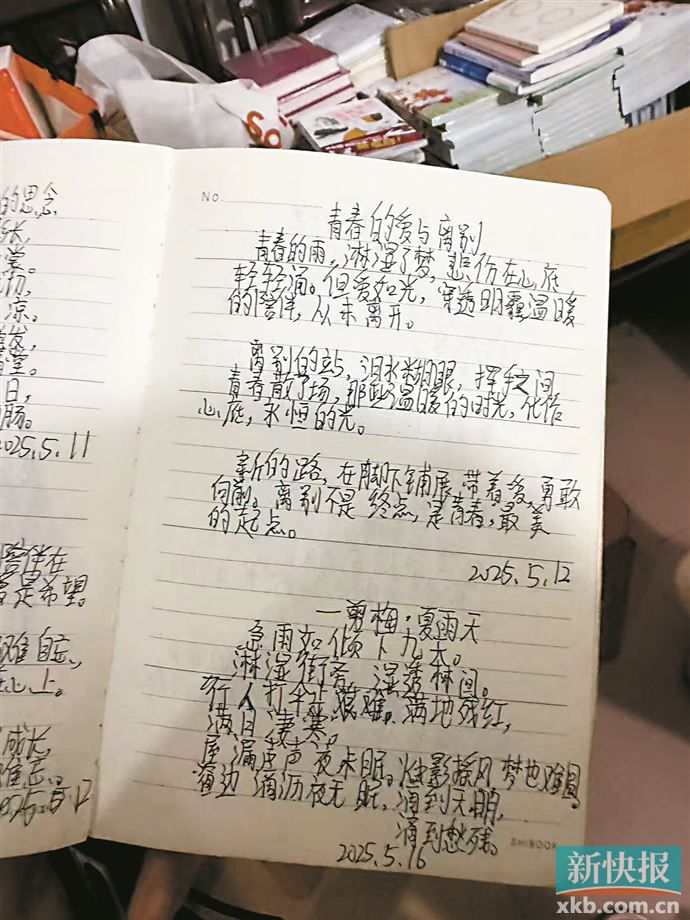 的思念
长,
裳。
切,
凉。
发,
堂。
日,
肠。
2025.5.11
陪伴在
是希望。
难自忘,
在心上。
成长,
难忘。
2025.5.12
No.
青春的爱与离别
青春的雨,淋湿了梦,悲伤在心底
轻轻涌。但爱如光,穿透阴霾,温暖
的陪伴,从未离开。
离别的站,泪水模糊眼,挥手间
青春散了场,那些温暖的时光,化作
心底,永恒的光。
新的路,在脚下铺展,带着爱,勇敢
向前。离别不是终点,是青春,最美
的起点。
2025.5.12
一剪梅·夏雨天
急雨如倾下九天。
淋湿街，湿透林间。
行人打伞步艰难。满地残红,
满目凄寒。
屋漏声声夜未眠。烛影摇风 梦也难圆。
窗边滴沥夜无眠,滴到天明,
滴到愁残。
2025.5.16
SHIBOOK
So
新快报
xkb.com.cn